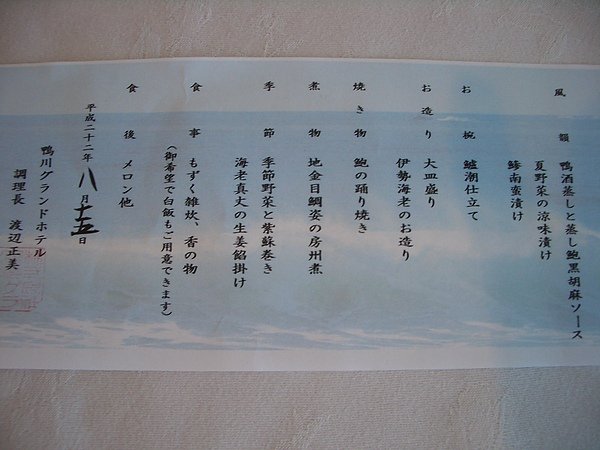 風韻 鴨酒蒸しと蒸し鮑黒胡麻ソース
夏野菜の涼味漬け
鯵南蛮漬け
お椀 鱸潮仕立て
お造り 大皿盛り
伊勢海老のお造り
焼き物 鮑の踊り焼き
煮物 地金目鯛姿の房州煮
季節 季節野菜と紫蘇巻き
海老真丈の生姜餡掛け
食事 もずく雑炊、香の物
(御希望で白飯もご用意できます)
食後 メロン他
平成二十二年八月十五日
鴨川グランドホテル
調理長 渡辺正美